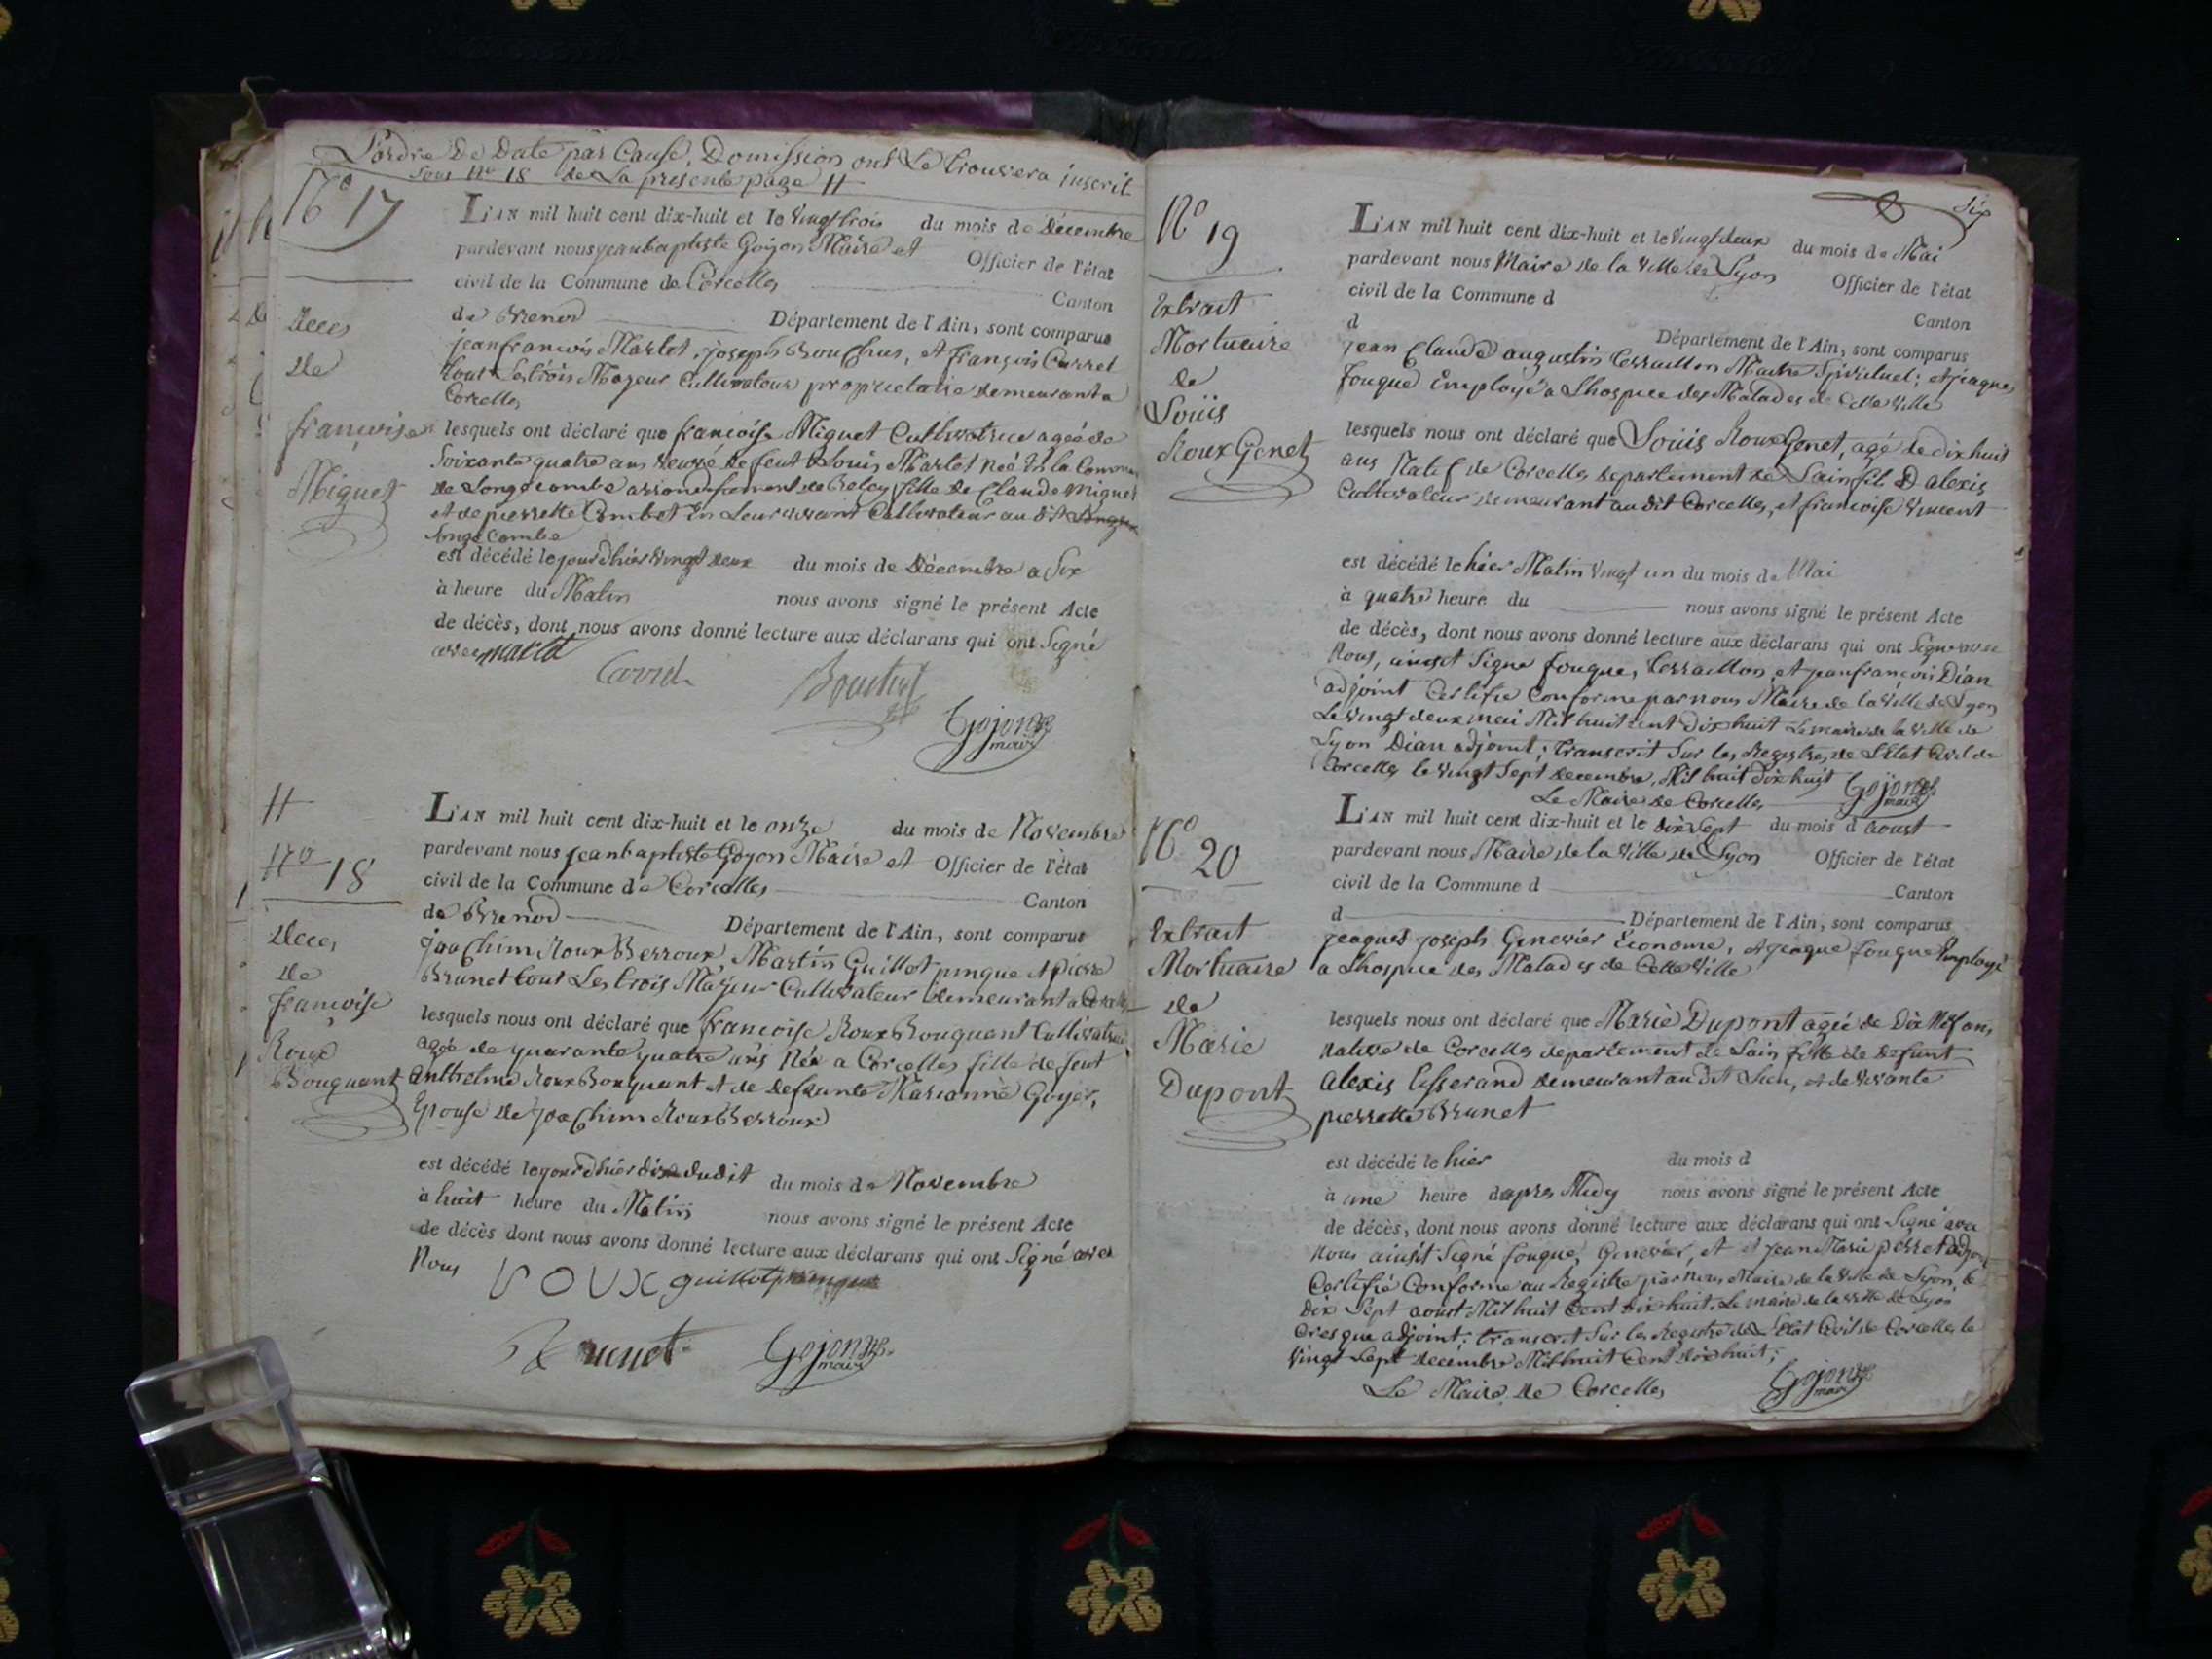 L'ordre De Date par Cause, Domission ont Le trouvera inscrit
sous No 18 de La presente page H
No 17
Deces
de
françoise
Miguet
L'AN mil huit cent dix-huit et le vingt trois du mois de Decembre
pardevant nous jeanbaptiste Gojon Maire et Officier de l'état
civil de la Commune de Corcelles Canton
de Brenod Département de l'Ain, sont comparus
jeanfrancois Marlet, joseph Bouchus, et françois Carrel
tout Les trois Majeur Cultivateur proprietaire demeurant a
Corcelles
lesquels ont déclaré que francoise Miguet Cultivatrice agée de
Soixante quatre ans veuve de feut Louis Marlet née En la Commune
de Longecombe arrondissement de Beley fille de Claude Miguet
et de pierrette Combet En Leur vivant Cultivateur au dit
longe Combe
est décédé le jourdhier vingt deux du mois de Décembre a Six
à heure du Matin nous avons signé le présent Acte
de décès, dont nous avons donné lecture aux déclarans qui ont Signé
avec marlet
Carrel
Gojon
maire
H
No 18
Deces
de
françoise
Roux
Bouquant
L'AN mil huit cent dix-huit et le onze du mois de Novembre
pardevant nous jeanbaptiste Gojon Maire et Officier de l'état
civil de la Commune de Corcelles Canton
de Brenod Département de l'Ain, sont comparus
joachim Roux Berroux, Martin Guillot pingue et pierre
Brunet tout Les trois Majeur Cultivateur demeurant a Corcelles
lesquels nous ont déclaré que francoise Roux Bouquant Cultivatrice
agée de quarante quatre ans Née a Corcelles fille de feut
anthelme Roux Bouquant et de defunte Marianne Goyet,
Epouse de joachim Roux Berroux
est décédé le jourdhier dix dudit du mois de Novembre
à huit heure du Matin nous avons signé le présent Acte
de décès dont nous avons donné lecture aux déclarans qui ont Signé avec
Nous roux guillot pingue
Brunet Gojon
maire
six
No 19
Extrait
Mortuaire
de
Louis
Roux Genet
L'AN mil huit cent dix-huit et le vingt deux du mois de Mai
pardevant nous Maire de la Ville de Lyon Officier de l'état
civil de la Commune d Canton
d Département de l'Ain, sont comparus
jean Claude augustin Terraillon Maitre Spirituel; et jaques
fouque Employé a Lhospice des Malades de Cette Ville
lesquels nous ont déclaré que Louis Roux Genet, agé de dix huit
ans Natif de Corcelles departement de Lain fils D alexis
Cultivateur demeurant au dit Corcelles, et francoise Vincent
est décédé le hier Matin Vingt un du mois de Mai
à quatre heure du nous avons signé le présent Acte
de décès, dont nous avons donné lecture aux déclarans qui ont Signé avec
Nous, ainsit Signe fouque, Terraillon, et jeanfrançois Dian
adjoint Certifie Conforme par nous Maire de la Ville de Lyon
Le vingt deux mai Mil huit cent Dix huit Le maire de la Ville de
Lyon Dian adjoint; transcrit Sur les Registres de L'Etat Civil de
Corcelles le vingt Sept decembre, Mil huit Dix huit Gojon
Le Maire de Corcelles maire
No 20
Extrait
Mortuaire
de
Marie
Dupont
L'AN mil huit cent dix-huit et le dix Sept du mois d'aoust
pardevant nous Maire de la Ville de Lyon Officier de l'état
civil de la Commune d Canton
d Département de l'Ain, sont comparus
jeaques joseph Genevier Econome, et jeaque fouque Employé
a Lhospice des Malades de Cette Ville
lesquels nous ont déclaré que Marie Dupont agée de Dix Neuf ans,
Native de Corcelles departement de Lain fille de Defunt
alexis Tisserand demeurant au dit Lieu, et de vivante
pierrette Brunet
est décédé le hier du mois d
à une heure d'apres Midy nous avons signé le présent Acte
de décès, dont nous avons donné lecture aux déclarans qui ont Signé avec
Nous ainsit Segné fouque, Genevier, et jean Marie perret
Certifié Conforme au Registre par nous Maire de la Ville de Lyon, le
dix Sept aoust Mil huit Cent dix huit. Le maire de la Ville de Lyon
adjoint; transcrit Sur les Registre de L'Etat Civil de Corcelles le
Vingt Sept decembre Mil huit Cent dix huit;
Le Maire de Corcelles Gojon
maire